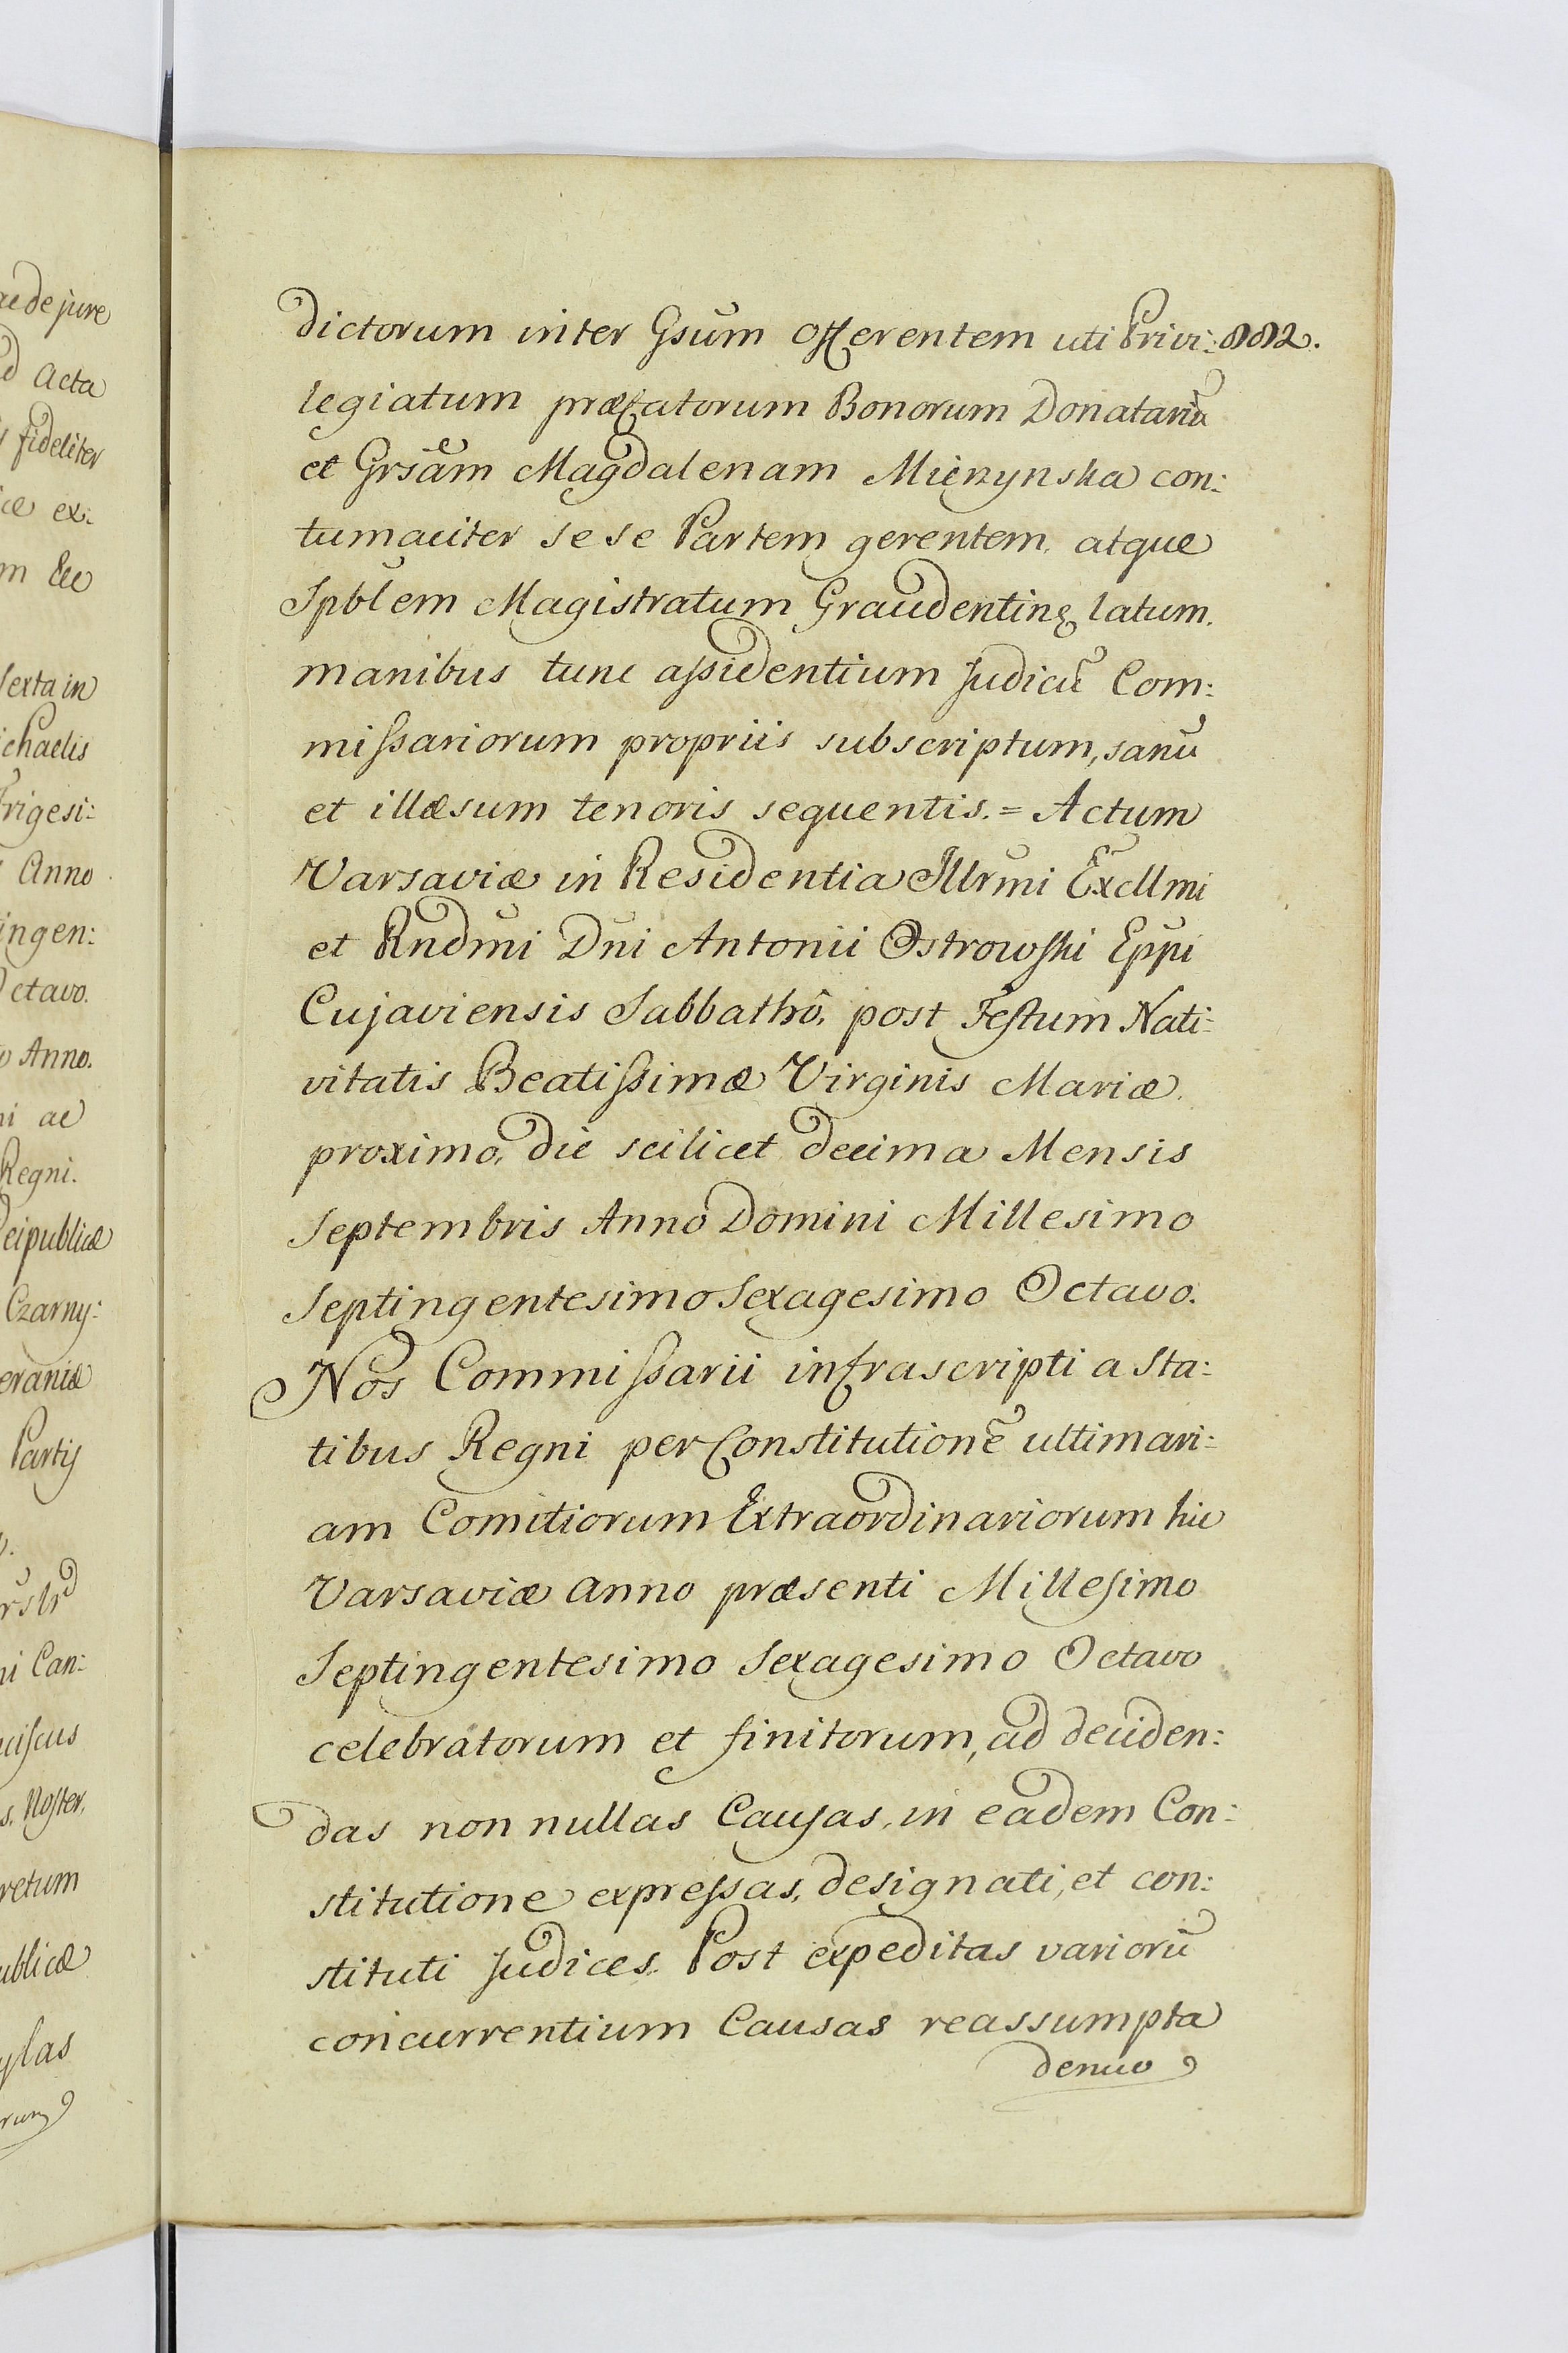 ae de jure
d Acta
fideliter
ce ex:
m &c
Sexta in
ichaelis
Trigesi:
Anno
ingen:
Octavo.
o Anno.
ni ac
Regni.
Reipublicæ
Czarny:
eraniæ
Partis
ni Can:
ciscus
s. Noster,
retum
ublicæ
ylas
rum
dictorum inter Gsum Offerentem uti Privi:
legiatum præfatorum Bonorum Donatariũ
et Grsam Magdalenam Mięzynska con:
tumaciter se se Partem gerentem, atque
Spblem Magistratum Graudentinȩ latum,
manibus tunc assidentium Judicũ Com:
missariorum propriis subscriptum, sanũ
et illæsum tenoris sequentis. = Actum
Varsaviæ in Residentia Illrmi Excllmi
et Rndmi Dni Antonii Ostrowski Eppi
Cujaviensis Sabbathô, post Festum Nati:
vitatis Beatissimæ Virginis Mariæ,
proximo, die scilicet decima Mensis
Septembris Anno Domini Millesimo
Septingentesimo Sexagesimo Octavo.
Nos Commissarii infrascripti a Sta:
tibus Regni per Constitutionẽ ultimari:
am Comitiorum Extraordinariorum hic
Varsaviæ anno præsenti Millesimo
Septingentesimo Sexagesimo Octavo
celebratorum et finitorum, ad deciden:
das non nullas Causas, in eadem Con:
stitutione expressas, designati, et con:
stituti Judices. Post expeditas variorũ
concurrentium Causas reassumpta
denuo